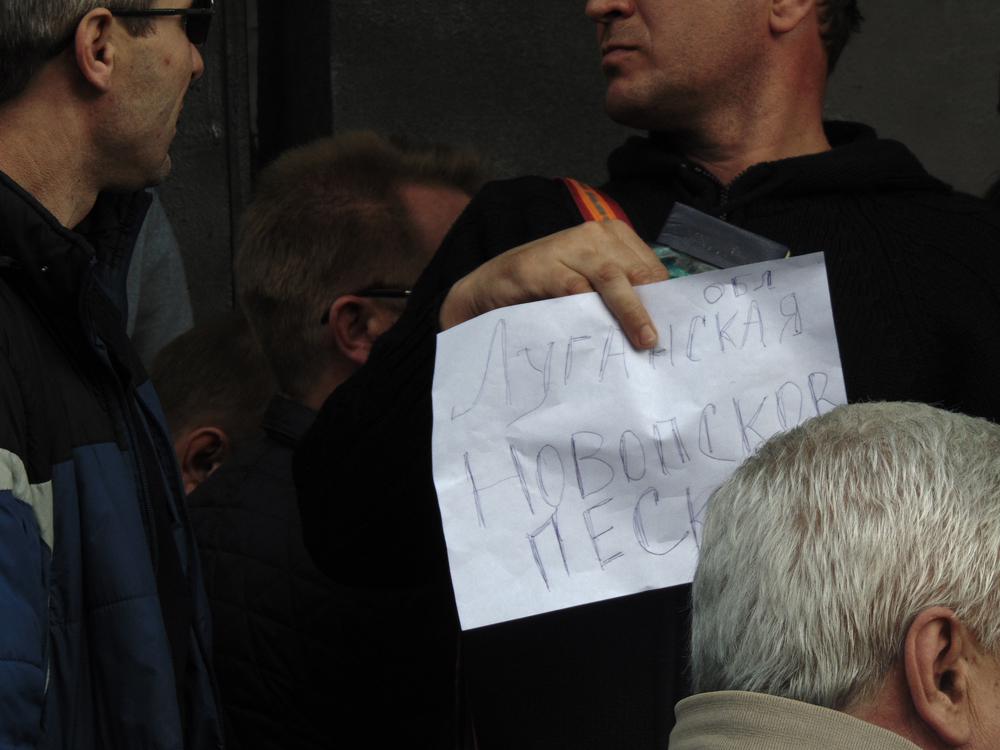 обл
Луганская
Новопсков
Песк